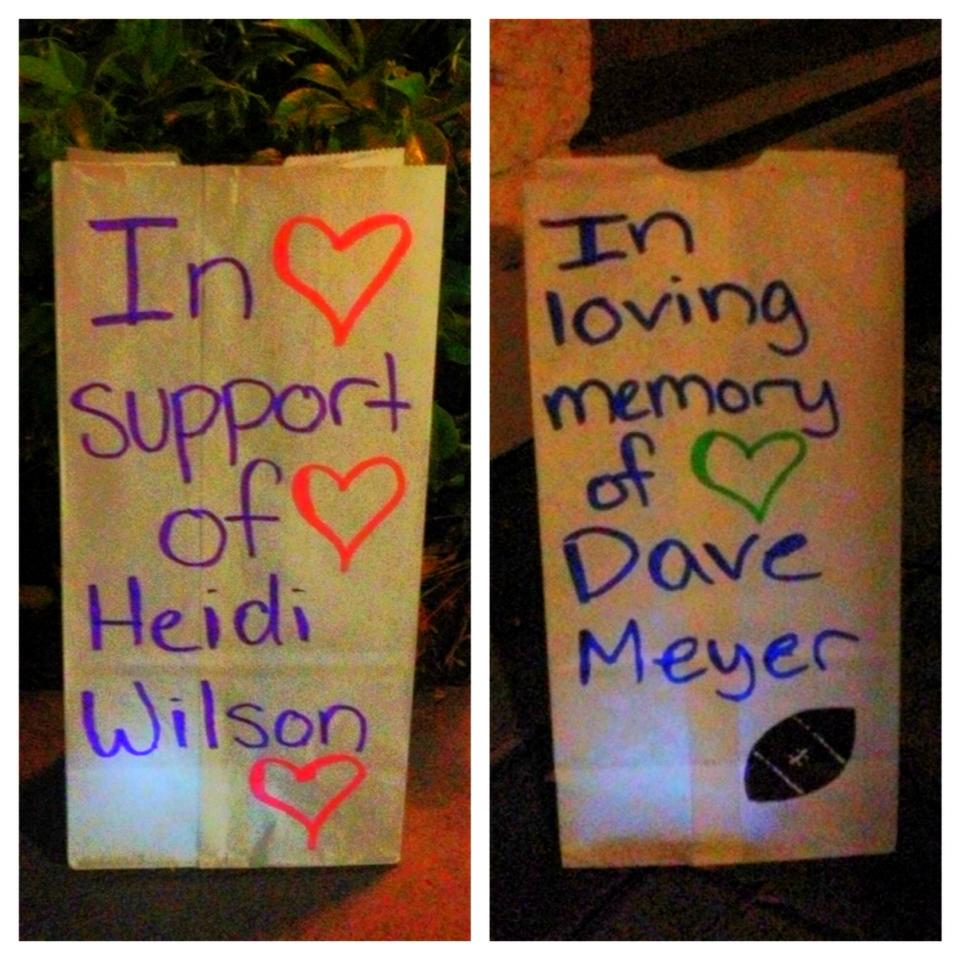 In
support
of
Heidi
Wilson
In
loving
memory
of
Dave
Meyer